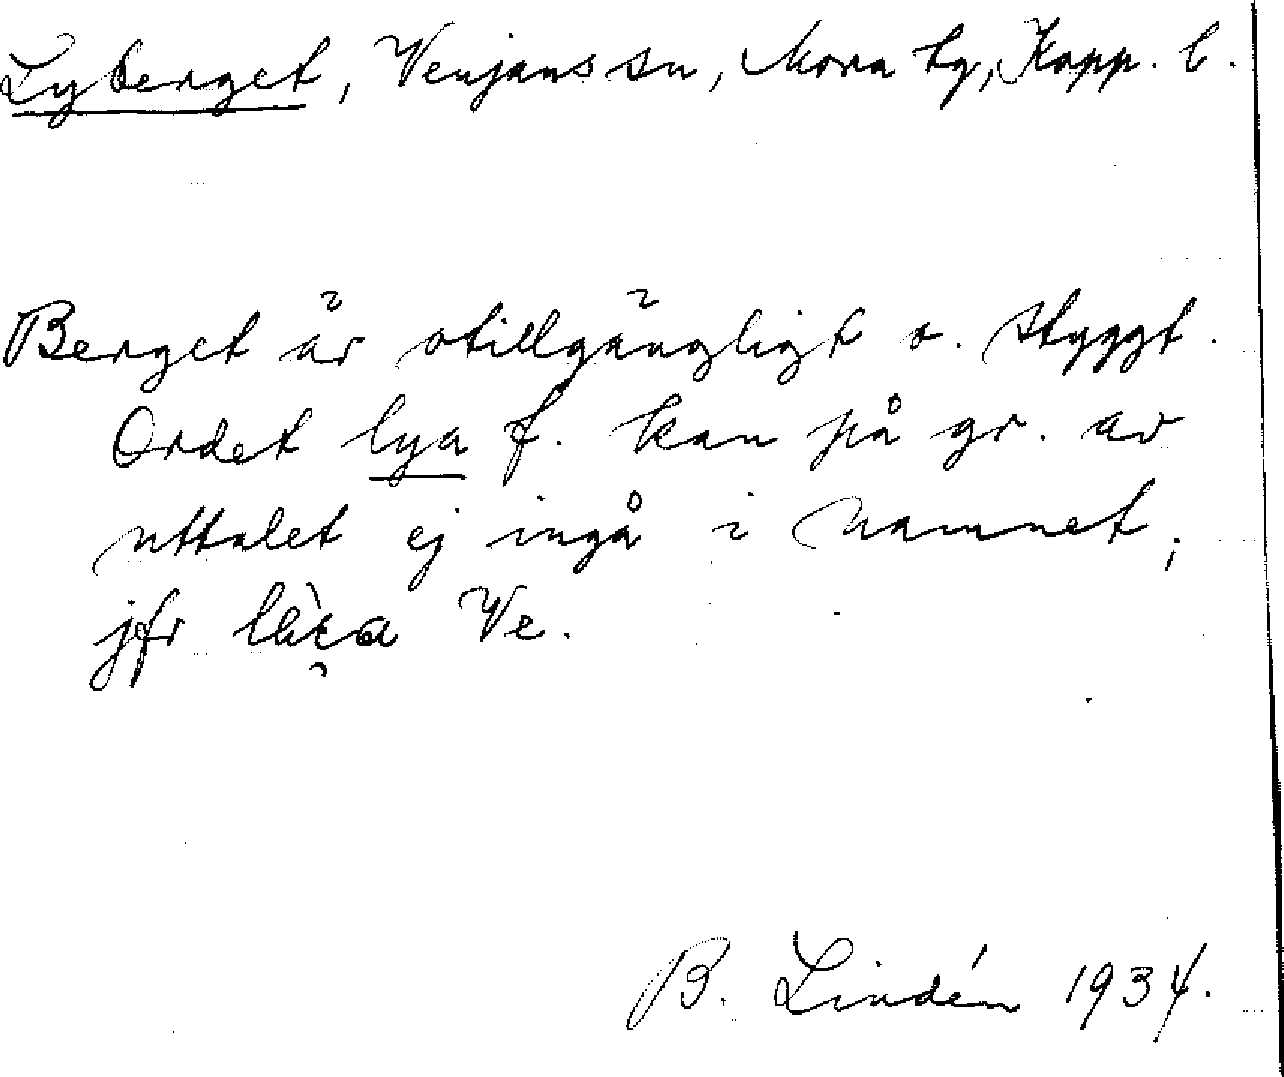 Lyberget, Venjans sn, Mora tg, Kopp. l.
Berget är otillgängligt o. styggt.
Ordet lya f. kan på gr. av
uttalet ej ingå i namnet;
jfr Ve.
B. Lindén 1934.